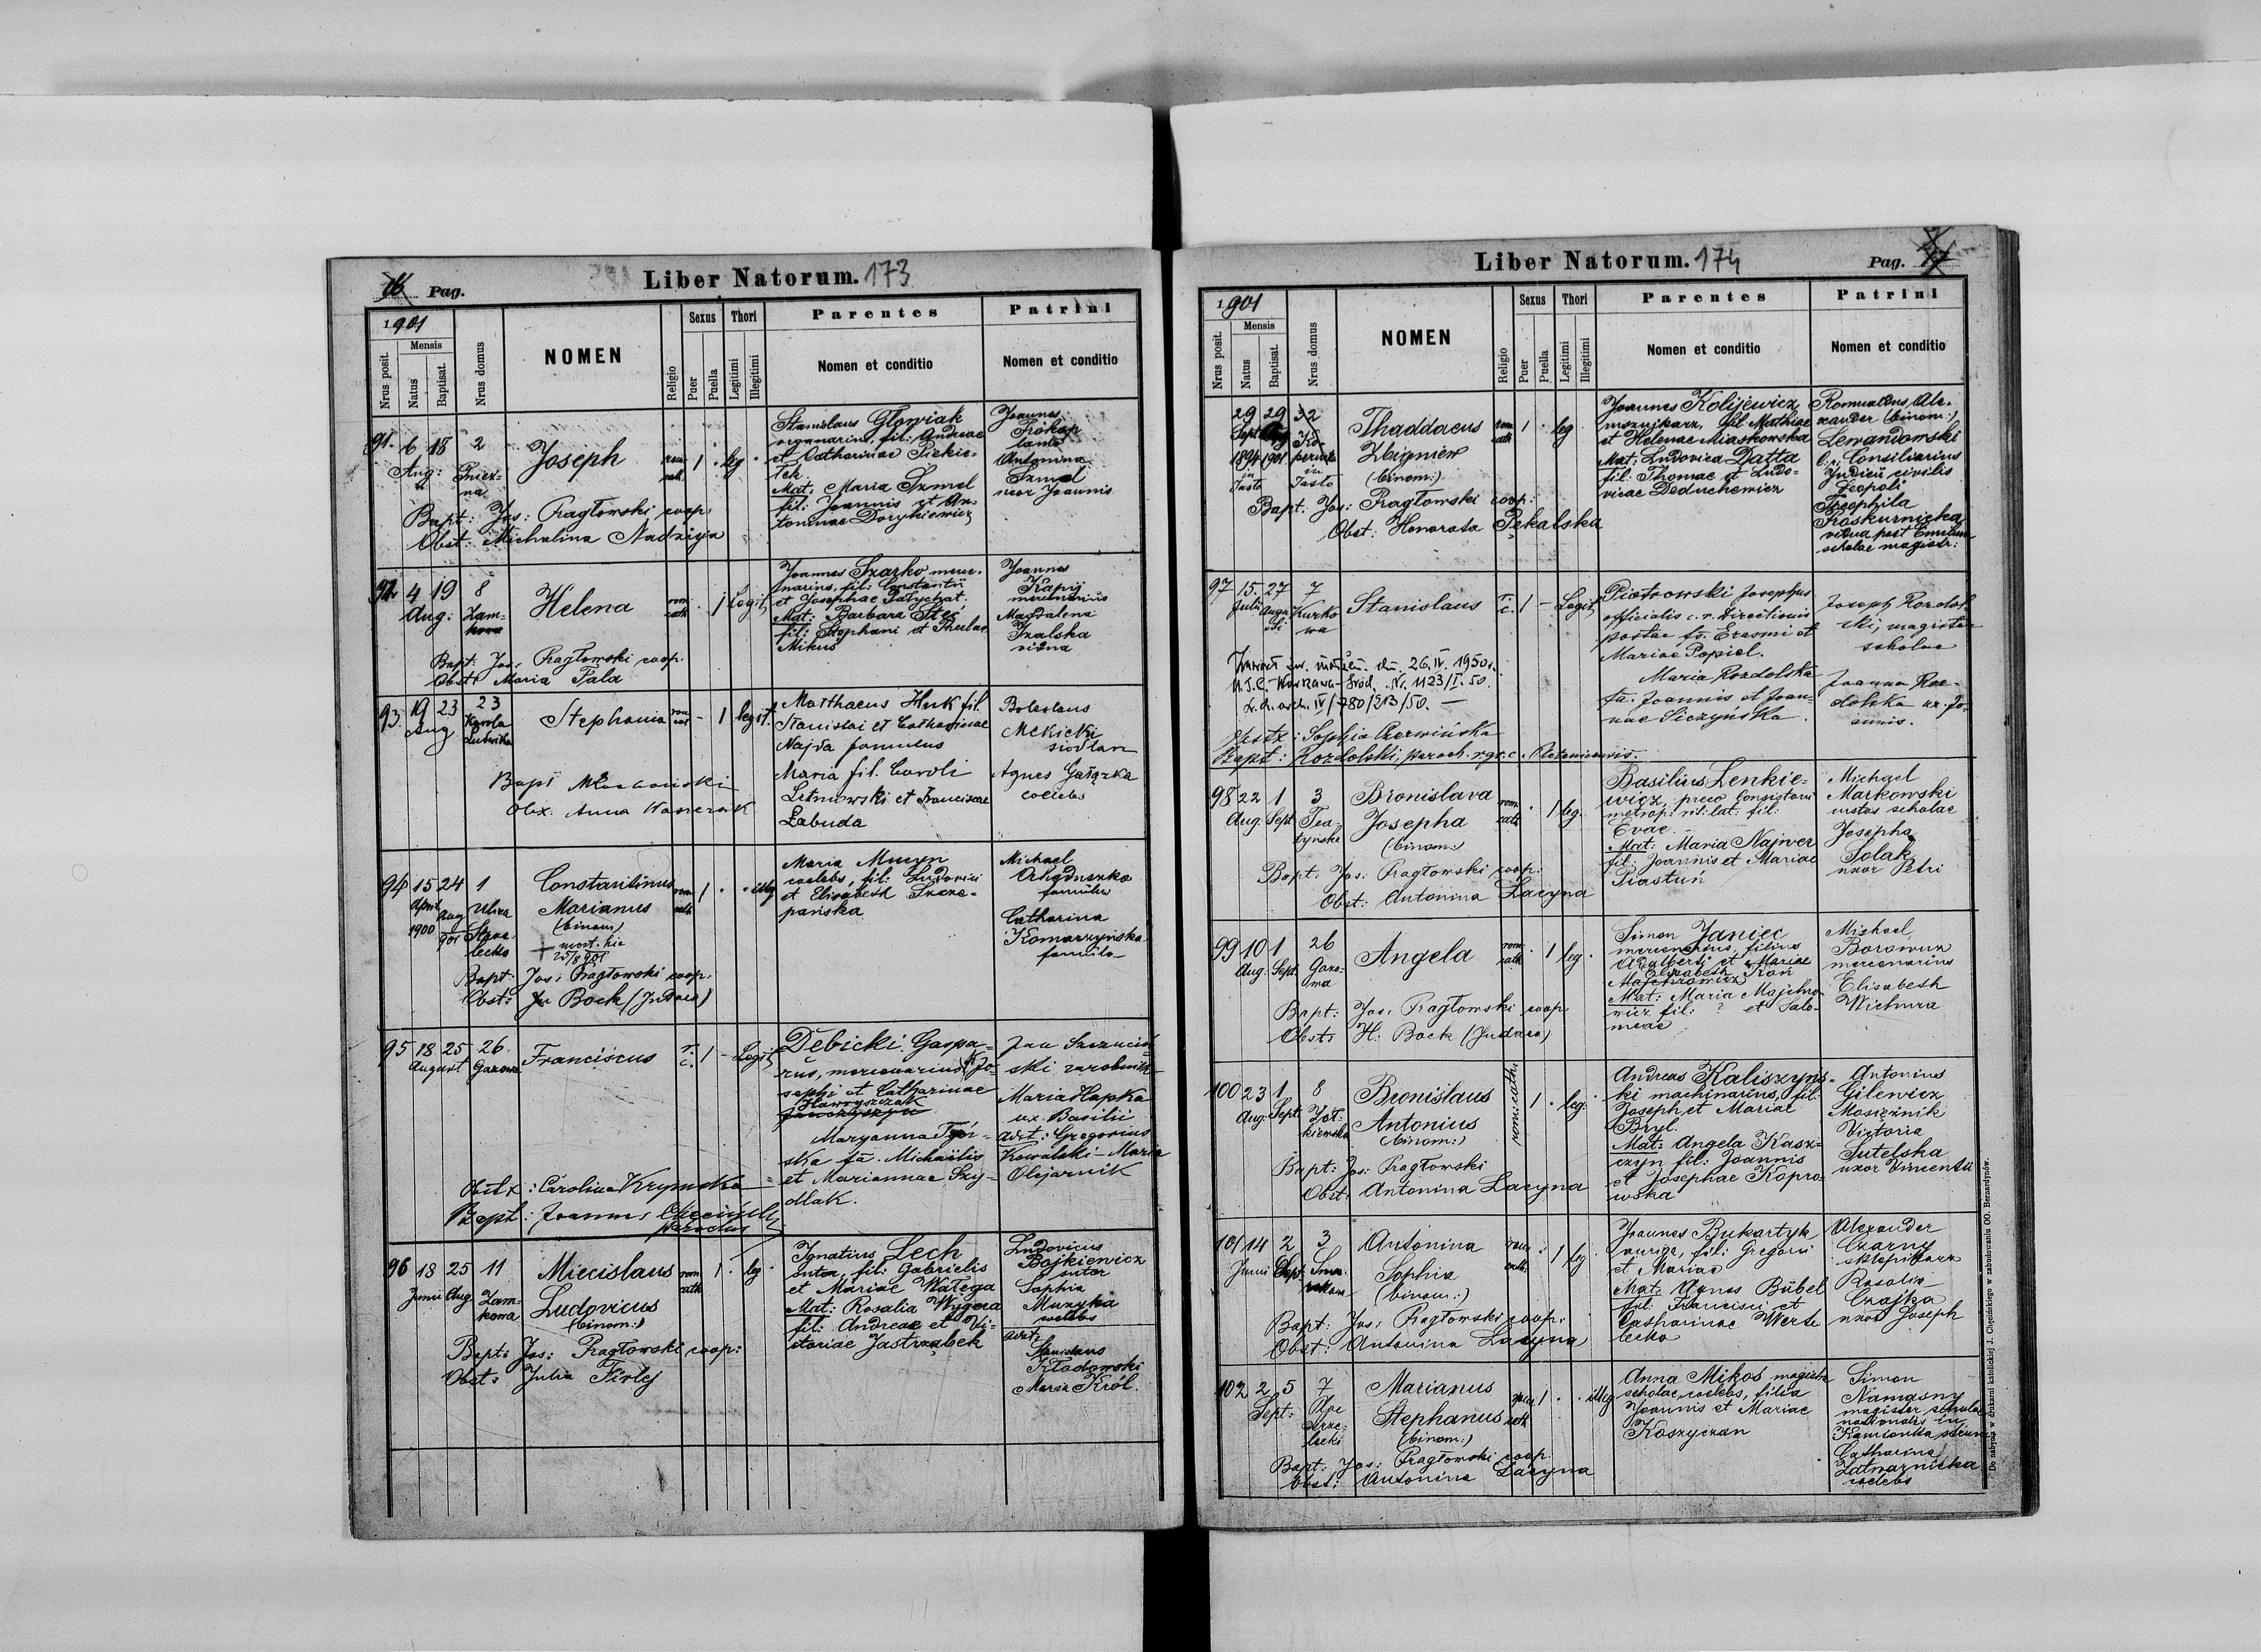 16 Pag.
Liber Natorum. 173
1901
Nrus posit.
Mensis
Natus
Baptisat.
Nrus domus
NOMEN
Religio
Sexus
Puer
Puella
Thori
Legitimi
Illegitimi
Parentes
Nomen et conditio
Patrini
Nomen et conditio
91. 6 18 2
Aug:
Joseph
rom. cath.
1 . leg .
Stanislaus Głowiak
organarius, fil: Andreae
et Catharinae Piekie-
Mat. Maria Szmel
fil: Joannis et An-
toninae Dorykiewicz
Joannes
Prokop
Antonina
Szmel
uxor Joannis
Bapt: Jos: Pragłowski coop:
Obst: Michalina Nadzieja
92 4 19 8
Aug: Zam-
kowa
Helena
rom. cath.
. 1 Legit.
Joannes Szarko merce-
narius, fil: Constantii
et Josephae Patychat.
Mat: Barbara Steć
fil: Stephani et Theclae
Mikus
Joannes
Kapij
mercenarius
Magdalena
Izalska
vidua
Bapt: Jos: Pragłowski coop.
Obst: Maria Pala
93. 19 23 23
Aug Karola
Ludwika
Stephania
- 1 legit.
Matthaeus Huk fil.
Stanislai et Catharinae
Najda famulus
Maria fil. Caroli
Letniowski et Franciscae
Łabuda
Boleslaus
Mekicki
siodlarz
Agnes Gałązka
coelebs
Obx. Anna
94 15 24 1
April Aug Ulica
1900 901 Strze-
lecka
Constantinus
Marianus
(binom)
+ mort. hic
25/8 901
rom. cath.
1 . . illeg
Maria Mucyn
coelebs, fil: Ludovici
et Elisabeth Szcze-
pańska
Michael
famulus
Catharina
Komarzyńska
famula
Bapt: Jos: Pragłowski coop:
Obst: Bock (Judaea)
95 18 25 26.
August Gazowa
Franciscus
r. c. 1 - Legit.
Dębicki Gaspa-
rus, mercenarius f. Jo-
sephi et Catharinae
Hawryszczak
Maryanna
ska fa. Michaelis
et Mariannae Szy-
dlak.
Jan
ski zarobnik
Maria Hapka
ux. Basilii
adst: Gregorius
Kowalski - Maria
Olijarnik
Obstx: Carolina Krymska
Bapt: Joannes Chęciński
parochus
96 18 25 11
Junii Aug. Zam-
kowa
Miecislaus
Ludovicus
(binom:)
rom. cath.
1 . leg .
Ignatius Lech
sutor, fil: Gabrielis
et Mariae Wałęga
Mat: Rosalia Wygera
fil: Andreae et Vi-
ctoriae Jastrząbek
Ludovicus
Bojkiewicz
sutor
Sophia
Muzyka
coelebs
adst:
Stanislaus
Kłodowski
Maria Król.
Bapt: Jos: Pragłowski coop:
Obst: Julia Firlej
Liber Natorum. 174
Pag. 17
1901
Nrus posit.
Mensis
Natus
Baptisat.
Nrus domus
NOMEN
Religio
Sexus
Puer
Puella
Thori
Legitimi
Illegitimi
Parentes
Nomen et conditio
Patrini
Nomen et conditio
29 29 32
Sept Aug Ko-
1894 1901 pernika
in in
Jasło Jasło
Thaddaeus
Zbigniew
(binom:)
rom. cath.
1 . leg
Joannes Kolijewicz
fil: Mathiae
et Helenae Miaskowska
Mat: Ludovica Datta
fil: Thomae et Ludo-
vicae Deduchewicz
Romualdus Ale-
xander (binom:)
Lewandowski
Consiliarius
Judicii civilis
Leopoli
Theophila
Proskurnicka
vidua post Emilium
scholae magistr:
Bapt: Jos: Pragłowski coop:
Obst: Honorata Pękalska
97 15. 27 7
Juli Augu- Kurko
sti wa
Stanislaus
r. c. 1 - Legit.
Piotrowski Josephus
officialis c. r. directionis
postae fs. Erasmi et
Mariae Popiel.
Maria Rozdolska
fa. Joannis et Joan-
nae Siczyńska.
Joseph Rozdol
ski, magister
scholae
Joanna Roz-
dolska ux. Jo-
annis.
26. IV. 1950 r.
U.S.C. Warszawa-Śród. Nr. 1123/I.50.
IV/780/213/50. -
Obstx: Sophia Czerwińska
Bapt: Rozdolski, paroch. r.gr.c.
98 22 1 3
Aug. Sept. Tea-
tyńska
Bronislava
Josepha
(binom:)
rom. cath.
. 1 leg.
Basilius Lenkie-
wicz, preco Consistorii
metrop: rit: lat: fil:
Evae.
Mat: Maria Najwer
fil: Joannis et Mariae
Piastuń
Michael
Markowski
custos scholae
Josepha
Solak
uxor Petri
Bapt: Jos: Pragłowski coop:
Obst: Antonina Łacyna
99 10 1 26
Aug. Sept. Gazo-
wa
Angela
rom. cath.
. 1 leg .
Simon Janiec
mercenarius, filius
Adalberti et Mariae
Elisabeth Kon
Majchrowicz
Mat: Maria Majchro-
wicz fil: ? et Salo-
meae
Michael
Borowun
mercenarius
Elisabeth
Wichura
Bapt: Jos: Pragłowski coop.
Obst: H: Bock (Judaea)
100 23 1 8
Aug. Sept. Żół-
kiewska
Bronislaus
Antonius
(binom:)
rom: cath:
1 . leg: .
Andreas Kaliszyns-
ki machinarius, fil:
Joseph et Mariae
Bryl.
Mat: Angela Kasz-
czyn fil: Joannis
et Josephae Kopro-
wska
Antonius
Gilewicz
Mosiężnik
Victoria
Sutelska
uxor Vincentii
Bapt: Jos: Pragłowski
Obst: Antonina Łacyna
101 14 2 3
Junii Sept.
Antonina
Sophia
(binom:)
rom. cath.
. 1 leg
Joannes Bukartyk
auriga, fil: Gregorii
et Mariae
Mat: Agnes Bübel
fil: Francisci et
Catharinae Werte
lecka
Alexander
Czarny
sklepikarz
Rosalia
Czajka
uxor Joseph
Bapt: Jos: Pragłowski coop:
Obst: Antonina Łacyna
102 2 5 7
Sept:
Strze-
lecki
Marianus
Stephanus
(binom:)
rom. cath.
1 . . illeg
Anna Mikos magistra
scholae coelebs, filia
Joannis et Mariae
Koszyczan
Simon
Namasny
magister scholae
nationalis in
Kamionka strum
Catharina
Zatwarnicka
coelebs
Bapt: Jos: Pragłowski coop.
Obst: Antonina Łacyna
Do nabycia w drukarni katolickiej J. Chęcińskiego w zabudowaniu OO. Bernardynów.